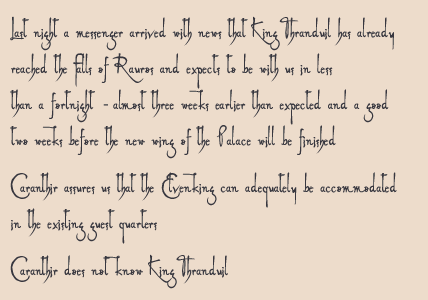 Last night a messenger arrived with news that King Thranduil has already
reached the falls of Rauros and expects to be with us in less
than a fortnight - almost three weeks earlier than expected and a good
two weeks before the new wing of the Palace will be finished
Caranthir assures us that the Elvenking can adequately be accommodated
in the existing guest quarters
Caranthir does not know King Thranduil